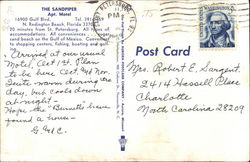 THE SANDPIPER
Apt. Motel
16900 Gulf Blvd. Tel. 391
N. Redington Beach, Florida
20 minutes from St. Petersburg. All types of
accommodations. All conveniences
sand beach on the Gulf of Mexico. Convenient
to shopping centers, fishing, boating and golf.
Arrived at our usual
Motel, Oct 1st. Plan
to be here
Quite warm during the
day, but cools down
at night.
Hope the Burnetts have
found a house -
G. M. C.
PM
Post Card
Mrs. Robert E. Sargent
2414 Hassell Place
Charlotte
North Carolina 28209